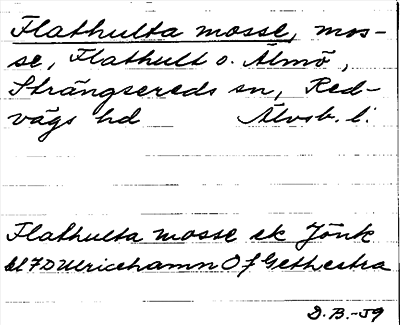 Flathulta mosse, mos-
se, Flathult o. Älmö,
Strängsereds sn, Red-
vägs hd Älvsb. l.
Flathulta mosse ek Jönk
bl 7D Ulricehamn Of Gethestra
D.B.-59